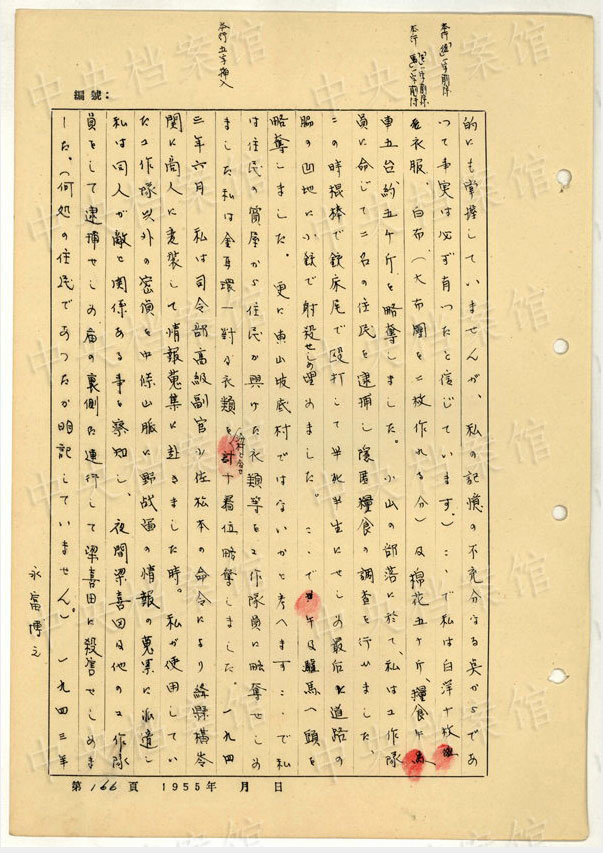 本行「的」一字削除
本行「穀」一字削除
本行「馬」一字削除
本行五字挿入
編號:
的にも掌握していませんが、私の記憶の不充分なる点からであ
つて事実は必ず有つたと信じています。)こゝで私は白洋十枚
衣服、白布(大布團を二枚作れる分)及棉花五ケ斤、糧食牛
車五台約五ケ斤を略奪しました。小山の部落に於て、私は工作隊
員に命じて二名の住民を逮捕し隠匿糧食の調査を行いました、
この時棍棒で銃床尾で殴打して半死半生にせしめ最后に道路の
脇の凹地に小銃で射殺せしめ埋めました。こゝで牛及驢馬一頭を
略奪しました。更に東山坡底村ではないかと考へますこゝで私
は住民の質屋から住民が預けた衣類等を工作隊員に略奪せしめ
ました私は金耳環一対及衣類を計十着位略奪しました一九四
三年六月 私は司令部高級副官少佐松本の命令により絳縣橫岺
関に商人に変装して情報蒐集に赴きました時。私が使用してい
た工作隊以外の密偵を中條山脈に野战區の情報の蒐集に派遣し
私は同人が敵と関係ある事を察知し、夜間梁喜田及他の工作隊
員をして逮捕せしめ廟の裏側に連行して梁喜田に殺害せしめま
した。(何処の住民であつたか明記していません。) 一九四三年
永富博之
第166頁 1955年 月 日
中央档案馆